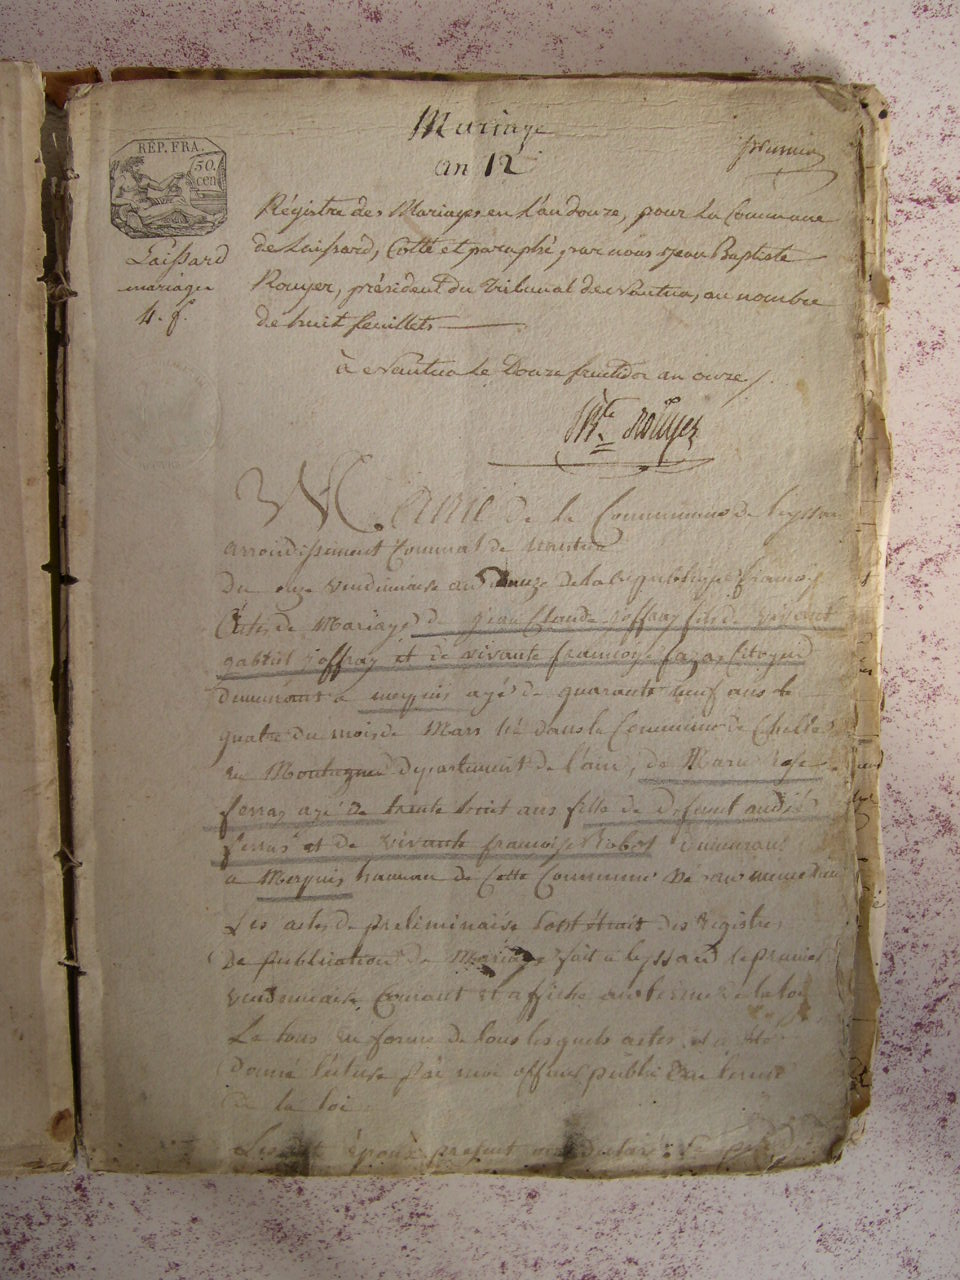 Mariage
an 12
RÉP. FRA.
50.
cen
Laissard
mariages
4. f.
Régistre des Mariages en L'an Douze, pour La Commune
de Laissard, Cotté et paraphé, par nous Jean Baptiste
Rouyer, président du Tribunal de Nantua, au nombre
de huit feuillets
à Nantua Le Douze fructidor an onze /.
JBte Rouyer
Marie de la Commune de leyssar
arrondissement Communal de nantua
Du onze vendimiaire an douze de la republique francoise
Acte de Mariage de jean Claude joffray fils de
gabriel joffray et de vivante francoise Citoyen
demeurant a meyssuis agé de quarante neuf ans le
quatre du mois de Mars né dans la Commune de
en Montagne departement de l'ain, de Marie Rose
ferras agé de trente trois ans fille de defunt
ferras et de vivante francoise demeurant
a hamau de Cette Commune
Les actes de preliminaire sont extrait des Registre
De publication de Mariage fait a leyssard le premier
vendimiaire Courant et affiche au terme de la loi
Le tous en forme de tous lesquels actes
Donné lecture par moi officier public
de la loi
Les dit époux present